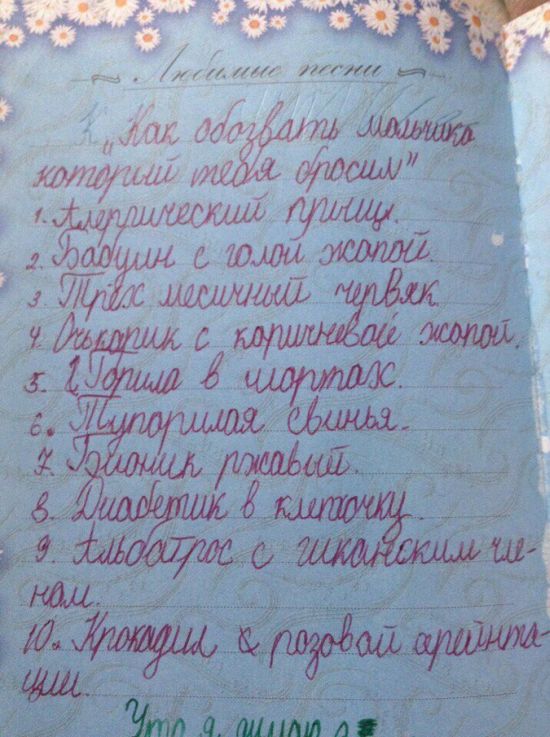 Любимые песни
„Как обозвать мальчика
который тебя бросил"
1. Алергический прищ.
2. Бабуин с голой жопой.
3. Трёх месичный червяк
4. Очькарик с коричневой жопой.
5. Горила в шортах.
6. Тупорилая свинья.
7. Бионик ржавый.
8. Диабетик в клеточку.
9. Альбатрос с гиканским чле-
ном.
10. Крокадил с розовой орейнта-
ции.
Что я